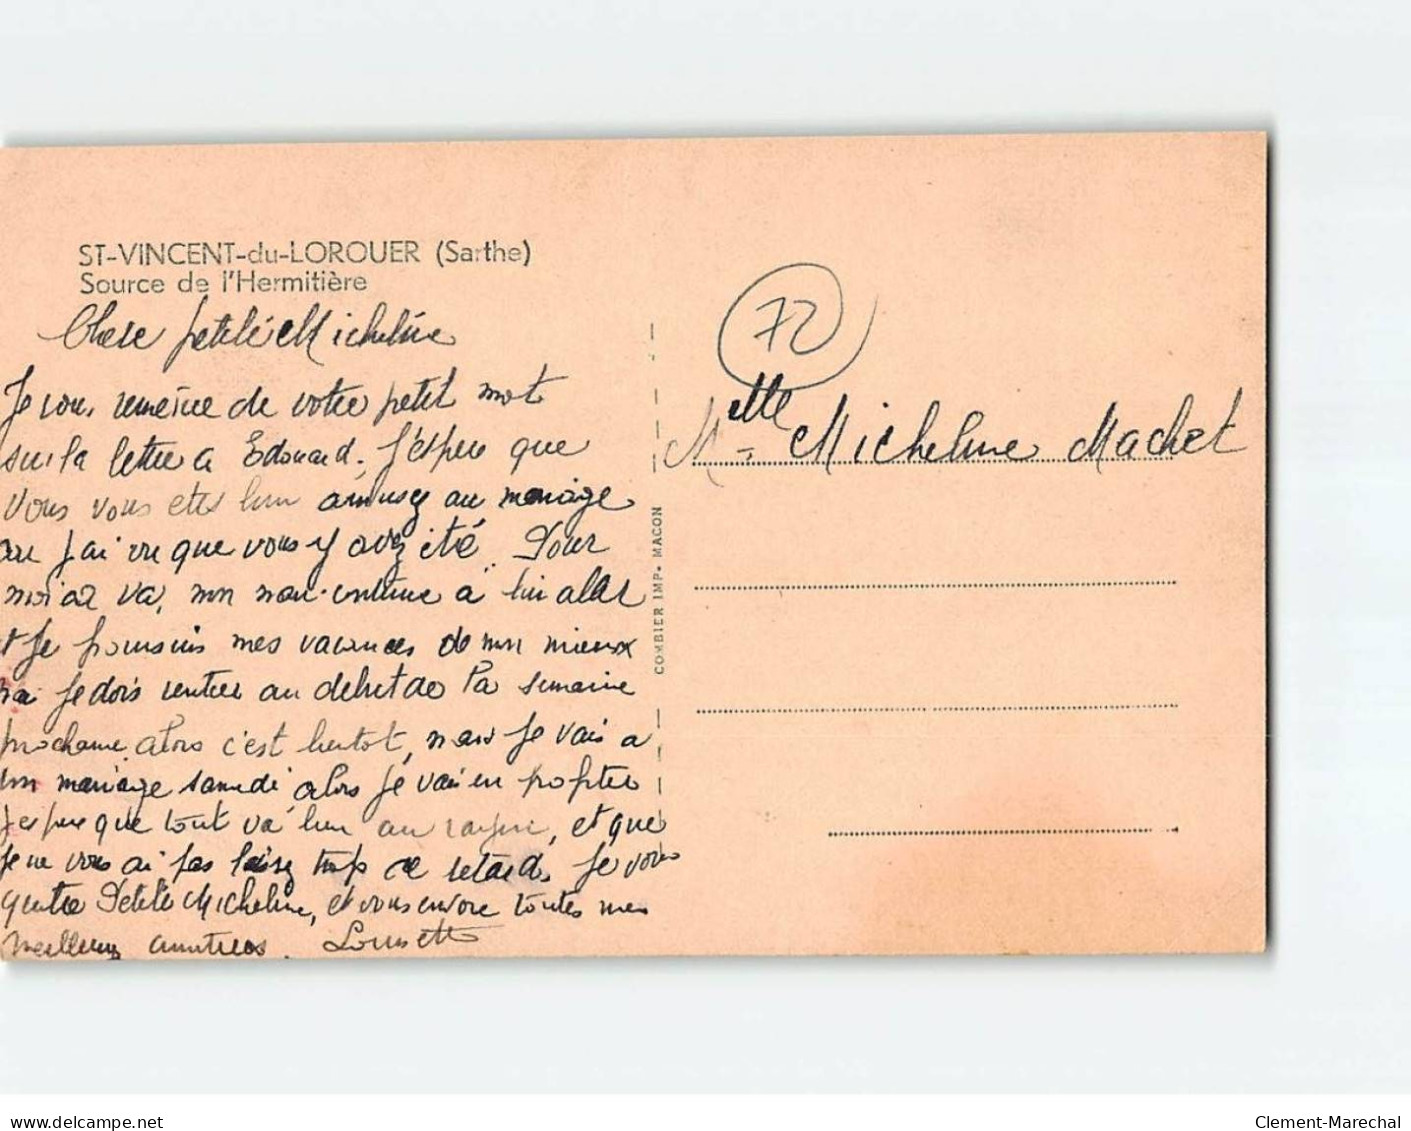 ST-VINCENT-du-LOROUER (Sarthe)
Source de l'Hermitière
Chere petite Micheline
Je vous remercie de votre petit mot
sur la lettre a Edouard. J'éspere que
vous vous etes bien amusez au mariage
car j'ai vu que vous y avez été. Pour
moi ca va, mon continue a bien aller
et je poursuis mes vacances de mon mieux
je dois rentrer au debut de la semaine
prochaine alors c'est bientot, mais je vais a
un mariage samedi alors je vais en profiter
j'espere que tout va bien au rayon, et que
je ne vous ai pas laissez trop de retard. Je vous
quitte Petite Micheline, et vous envoie toutes mes
meilleures amitiees. Lousette
72
Melle Micheline Machet
COMBIER IMP. MACON
www.delcampe.net
Clement-Marechal